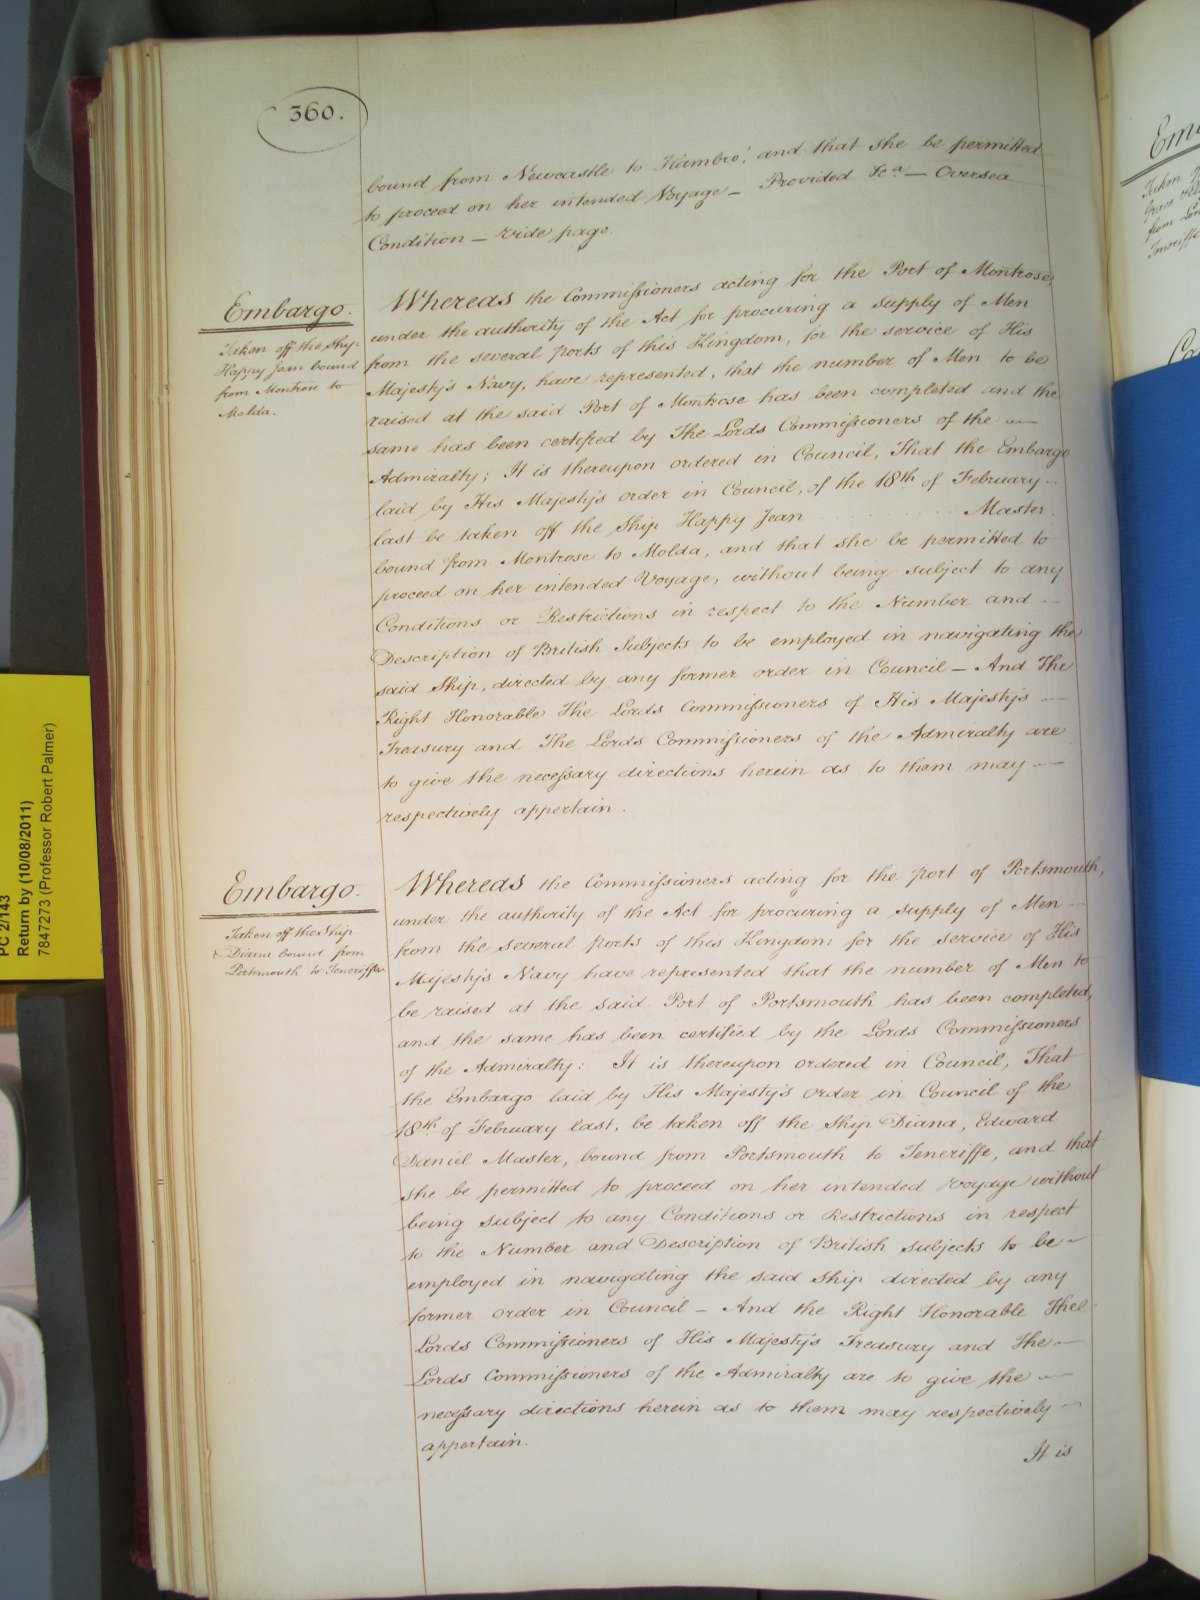 360.
bound from Newcastle to Hambro', and that she be permitted
to proceed on her intended Voyage — Provided &c.ª — Oversea
Condition — vide page.
Embargo.
Taken off the Ship
Happy Jean bound
from Montrose to
Molda.
Whereas the Commissioners acting for the Port of Montrose,
under the authority of the Act for procuring a supply of Men
from the several ports of this Kingdom, for the service of His
Majesty's Navy, have represented, that the number of Men to be
raised at the said Port of Montrose has been completed and the
same has been certified by The Lords Commissioners of the —
Admiralty; It is thereupon ordered in Council, That the Embargo
laid by His Majesty's order in Council, of the 18th of February —
last be taken off the Ship Happy Jean . . . . . . Master.
bound from Montrose to Molda, and that she be permitted to
proceed on her intended Voyage, without being subject to any
Conditions or Restrictions in respect to the Number and —
Description of British Subjects to be employed in navigating the
said Ship, directed by any former order in Council — And The
Right Honorable The Lords Commissioners of His Majesty's —
Treasury and The Lords Commissioners of the Admiralty are
to give the necessary directions herein as to them may —
respectively appertain.
Embargo.
Taken off the Ship
Diana bound from
Portsmouth to Teneriffe.
Whereas the Commissioners acting for the port of Portsmouth,
under the authority of the Act for procuring a supply of Men —
from the several ports of this Kingdom for the service of His
Majesty's Navy have represented that the number of Men to
be raised at the said Port of Portsmouth has been completed,
and the same has been certified by the Lords Commissioners
of the Admiralty: It is thereupon ordered in Council, That
the Embargo laid by His Majesty's order in Council of the
18th of February last, be taken off the Ship Diana, Edward
Daniel Master, bound from Portsmouth to Teneriffe, and that
she be permitted to proceed on her intended voyage without
being subject to any Conditions or Restrictions in respect
to the Number and Description of British subjects to be —
employed in navigating the said ship directed by any
former order in Council — And the Right Honorable The
Lords Commissioners of His Majesty's Treasury and the —
Lords Commissioners of the Admiralty are to give the —
necessary directions herein as to them may respectively —
appertain.
It is
PC 2/143
Return by (10/08/2011)
7847273 (Professor Robert Palmer)
Taken
from
Teneriffe